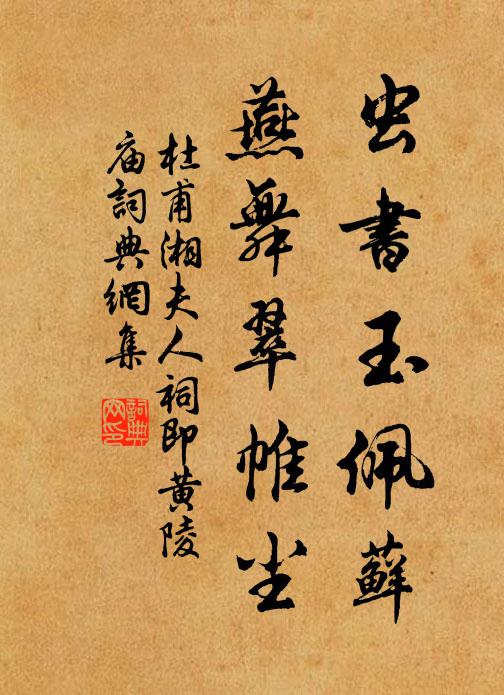 虫書玉佩蘚
燕舞翠帷尘
杜甫湘夫人祠即黄陵
庙詞典網集
詞典
网印